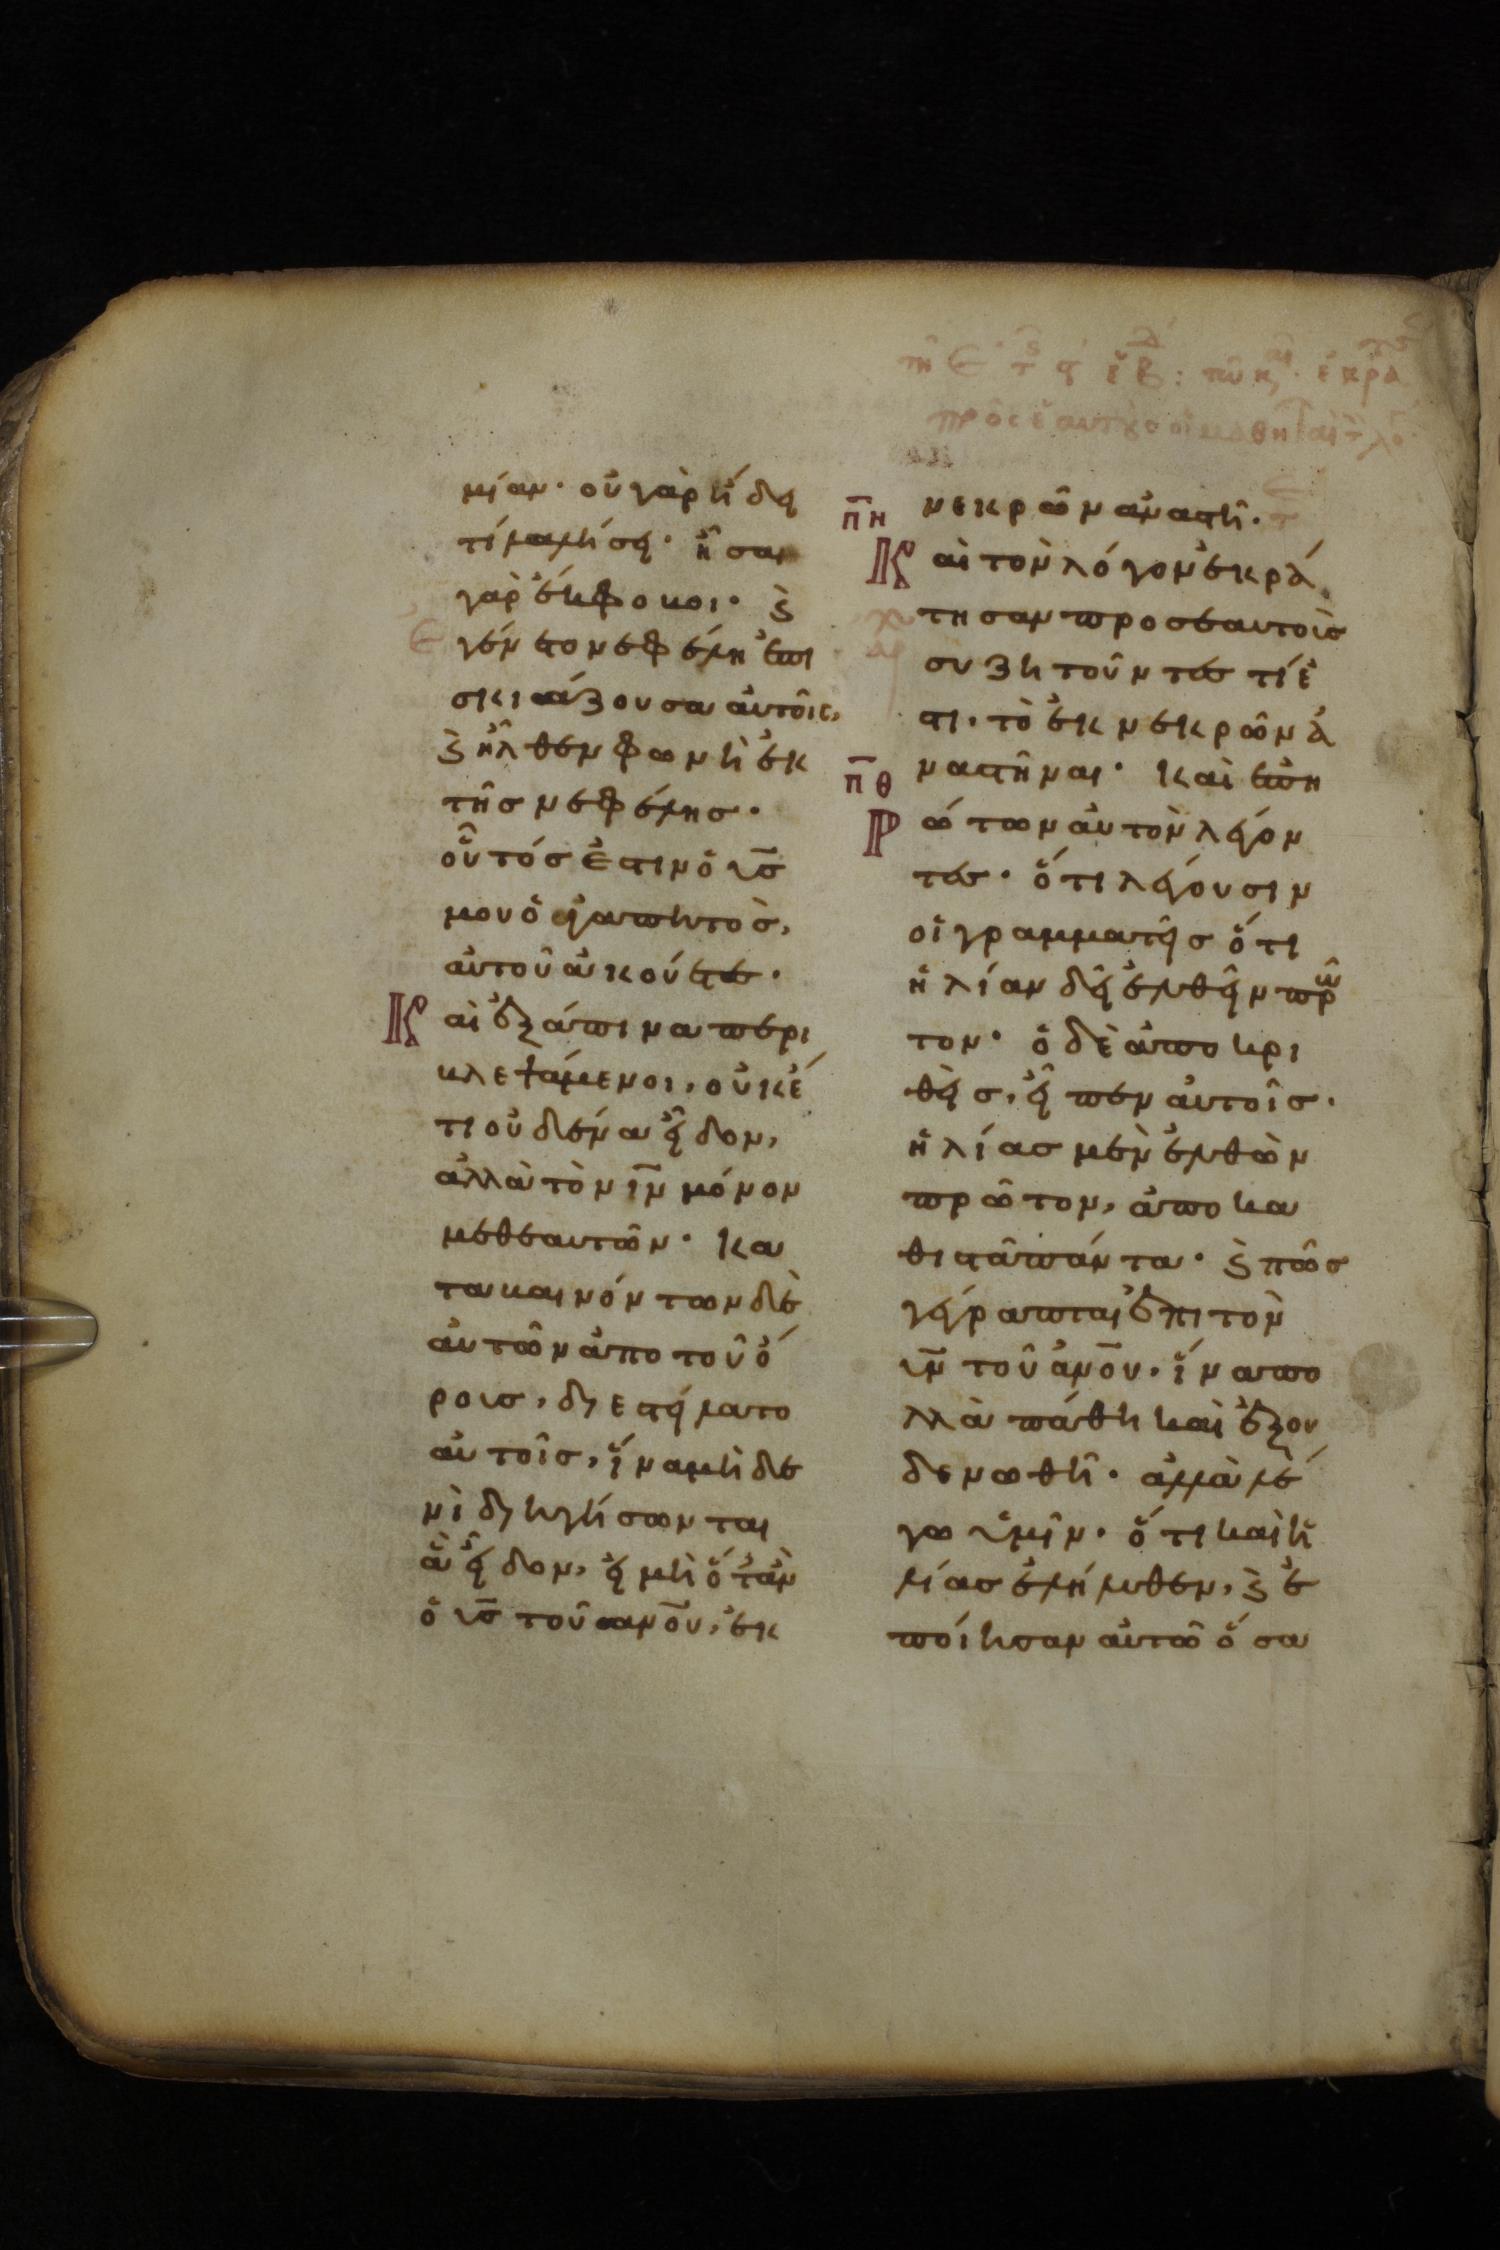 μίαν· οὐ γὰρ ἤδει
τί λαλήσει· ἦσαν
γὰρ ἔκφοβοι· καὶ
ἐγένετο νεφέλη ἐπι
σκιάζουσα αὐτοῖς,
καὶ ἦλθεν φωνὴ ἐκ
τῆς νεφέλης·
οὗτός ἐστιν ὁ υ̅ς̅
μου ὁ ἀγαπητὸς,
αὐτοῦ ἀκούετε·
Καὶ ἐξάπινα περι
βλεψάμενοι, οὐκέ
τι οὐδένα εἶδον,
ἀλλὰ τὸν ι̅ν̅ μόνον
μεθεαυτῶν· Κα
ταβαινόντων δὲ
αὐτῶν ἀπο τοῦ ὄ
ρους, διεστείλατο
αὐτοῖς, ἵνα μὴδε
νὶ διηγήσωνται
ἃ εἶδον, εἰ μὴ ὅταν
ὁ υ̅ς̅ τοῦ α̅ν̅ο̅υ̅, ἐκ
νεκρῶν ἀναστῆ·
π̅η̅
Καὶ τὸν λόγον ἐκρά
τησαν προσεαυτοὺς
συζητοῦντες τί ἐ
στι, τὸ ἐκ νεκρῶν ἀ
ναστῆναι· Καὶ ἐπη
π̅θ̅
Ρώτων αὐτὸν λέγον
τες· ὅτι λέγουσιν
οἱ γραμματεῖς ὅτι
ἡλίαν δεῖ ἐλθεῖν πρῶ
τον· ὁ δὲ ἀποκρι
θεὶς, εἶπεν αὐτοῖς·
ἡλίας μὲν ἐλθὼν
πρῶτον, ἀποκα
θιστᾶ πάντα· καὶ πῶς
γέγραπται ἐπι τὸν
υ̅ν̅ τοῦ α̅ν̅ο̅υ̅, ἵνα πο
λλὰ πάθη καὶ ἐξου
δενωθῆ· ἀλλὰ λέ
γω ὑμῖν· ὅτι καὶ ἡ
λίας ἐλήλυθεν, καὶ ἐ
ποίησαν αὐτῶ ὅσα